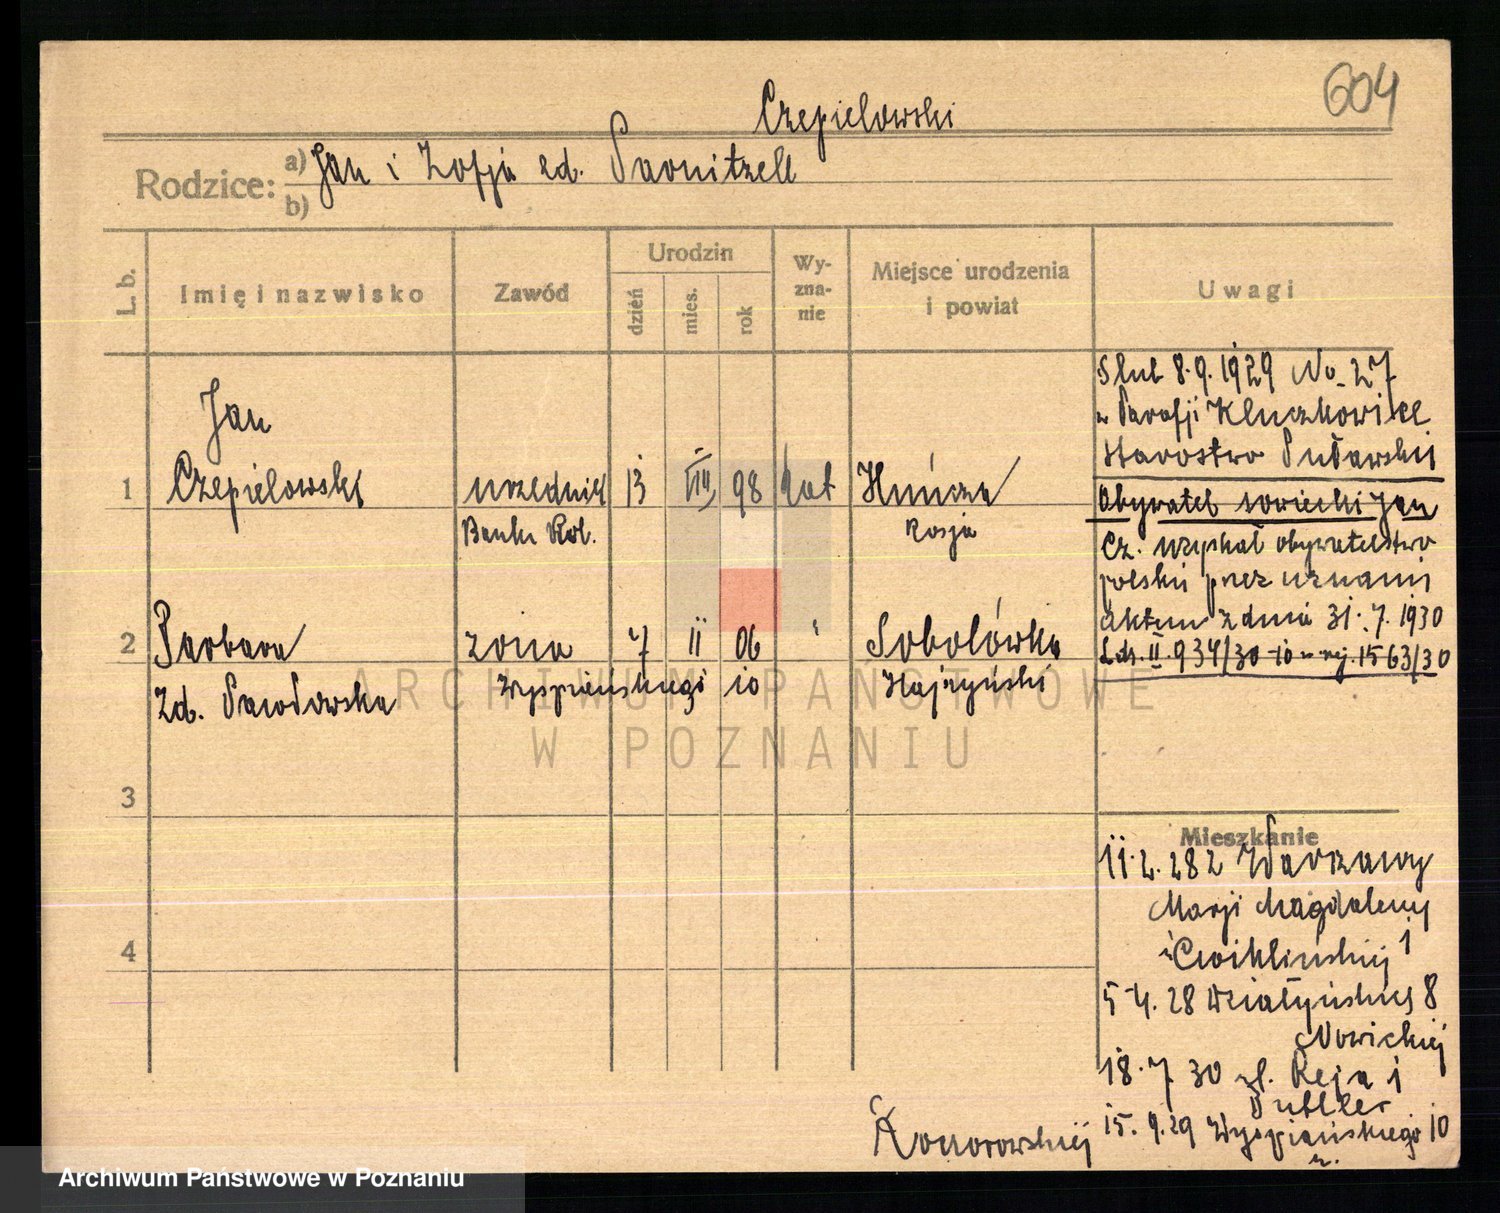 604
Czepielowski
Rodzice: a) Jan i Zofja zd.
b)
L. b.
Imię i nazwisko
Zawód
Urodzin
dzień
mies.
rok
Wy-
zna-
nie
Miejsce urodzenia
i powiat
Uwagi
1
Jan
Czepielowski
urzędnik
Banku Rol.
13
VIII
98
kat
Rosja
Ślub 8.9.1929 No 27
w Parafji Kluczkowice
Starostwo Puławskii
Obywatel sowiecki Jan
Cz. uzyskał obywatelstwo
polskie przez uznanie
aktem z dnia 31.7.1930
L.dz. II.934/30 1563/30
2
Barbara
zd. Pawłowska
żona
7
II
06
Sobolówka
Hajsyński
Wyspiańskiego 10
3
4
Mieszkanie
11.2.28 z Warszawy
Marji Magdaleny 1
Ćwiklińskiej
5.4.28 Działyńskich 8
Nowickiej
18.7.30 Reja 1
15.9.29 Wyspiańskiego 10
Konorowskiej
ARCHIWUM PAŃSTWOWE
W POZNANIU
Archiwum Państwowe w Poznaniu